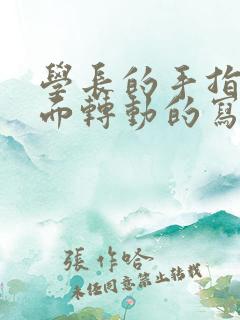 學長的手指
而轉動的寫
張作哈
未任同意禁止轉載